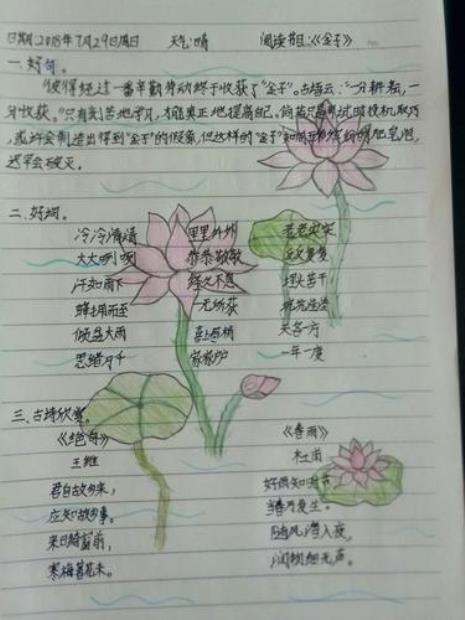 日期:2018年7月29日周日 天气:晴 阅读书目:《金子》
一、好句。
"彼得经过一番辛勤劳动终于收获了"金子"。古语云:"一分耕耘,一
分收获。"只有刻苦地学习,才能真正地提高自己。倘若只是投机取巧
或许会制造出得到"金子"的假象,但这样的"金子"如同
迟早会破灭。
二、好词。
冷冷清清 里里外外 老老实实
大大咧咧 恭恭敬敬 反反复复
汗如雨下 经久不息 埋头苦干
蜂拥而至 一无所获 坑坑洼洼
倾盆大雨 喜上眉梢 天各一方
思绪万千 家家户户 一年一度
三、古诗欣赏。
《绝句》 《春雨》
王维 杜甫
君自故乡来, 好雨知时节
应知故乡事。 当春乃发生。
来日绮窗前, 随风潜入夜,
寒梅著花未。 润物细无声。